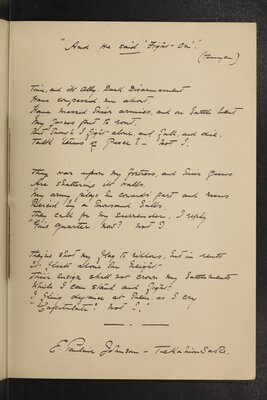 "And He said 'Fight-On'."
(Tennyson)
Time, and its Ally, Dark Disarmament
Have compassed me about.
Have massed their armies, and on battle bent
My forces put to rout,
But though I fight alone, and fall, and die,
Talk terms of Peace? - Not I.
They war upon my fortress, and their guns
Are shattering its walls
My army plays the cowards' part and runs
Pierced by a thousand balls
They call for my surrender, I reply
"Give quarter now? Not I"
They've shot my flag to ribbons, but in rents
It floats above the height-
Their ensign shall not crown my battlements
While I can stand and fight-
I fling defiance at them, as I cry
"Capitulate? Not I."
E. Pauline Johnson - Tekahionwake.